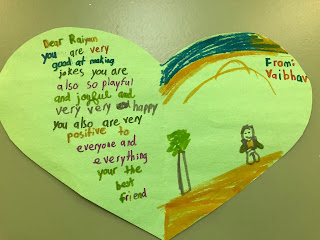 Dear Raiyan
you are very
good at making
jokes you are
also so playful
and joyful and
very very and happy
you also are very
positive to
everyone and
everything
your the
best
friend
From:
Vaibhav